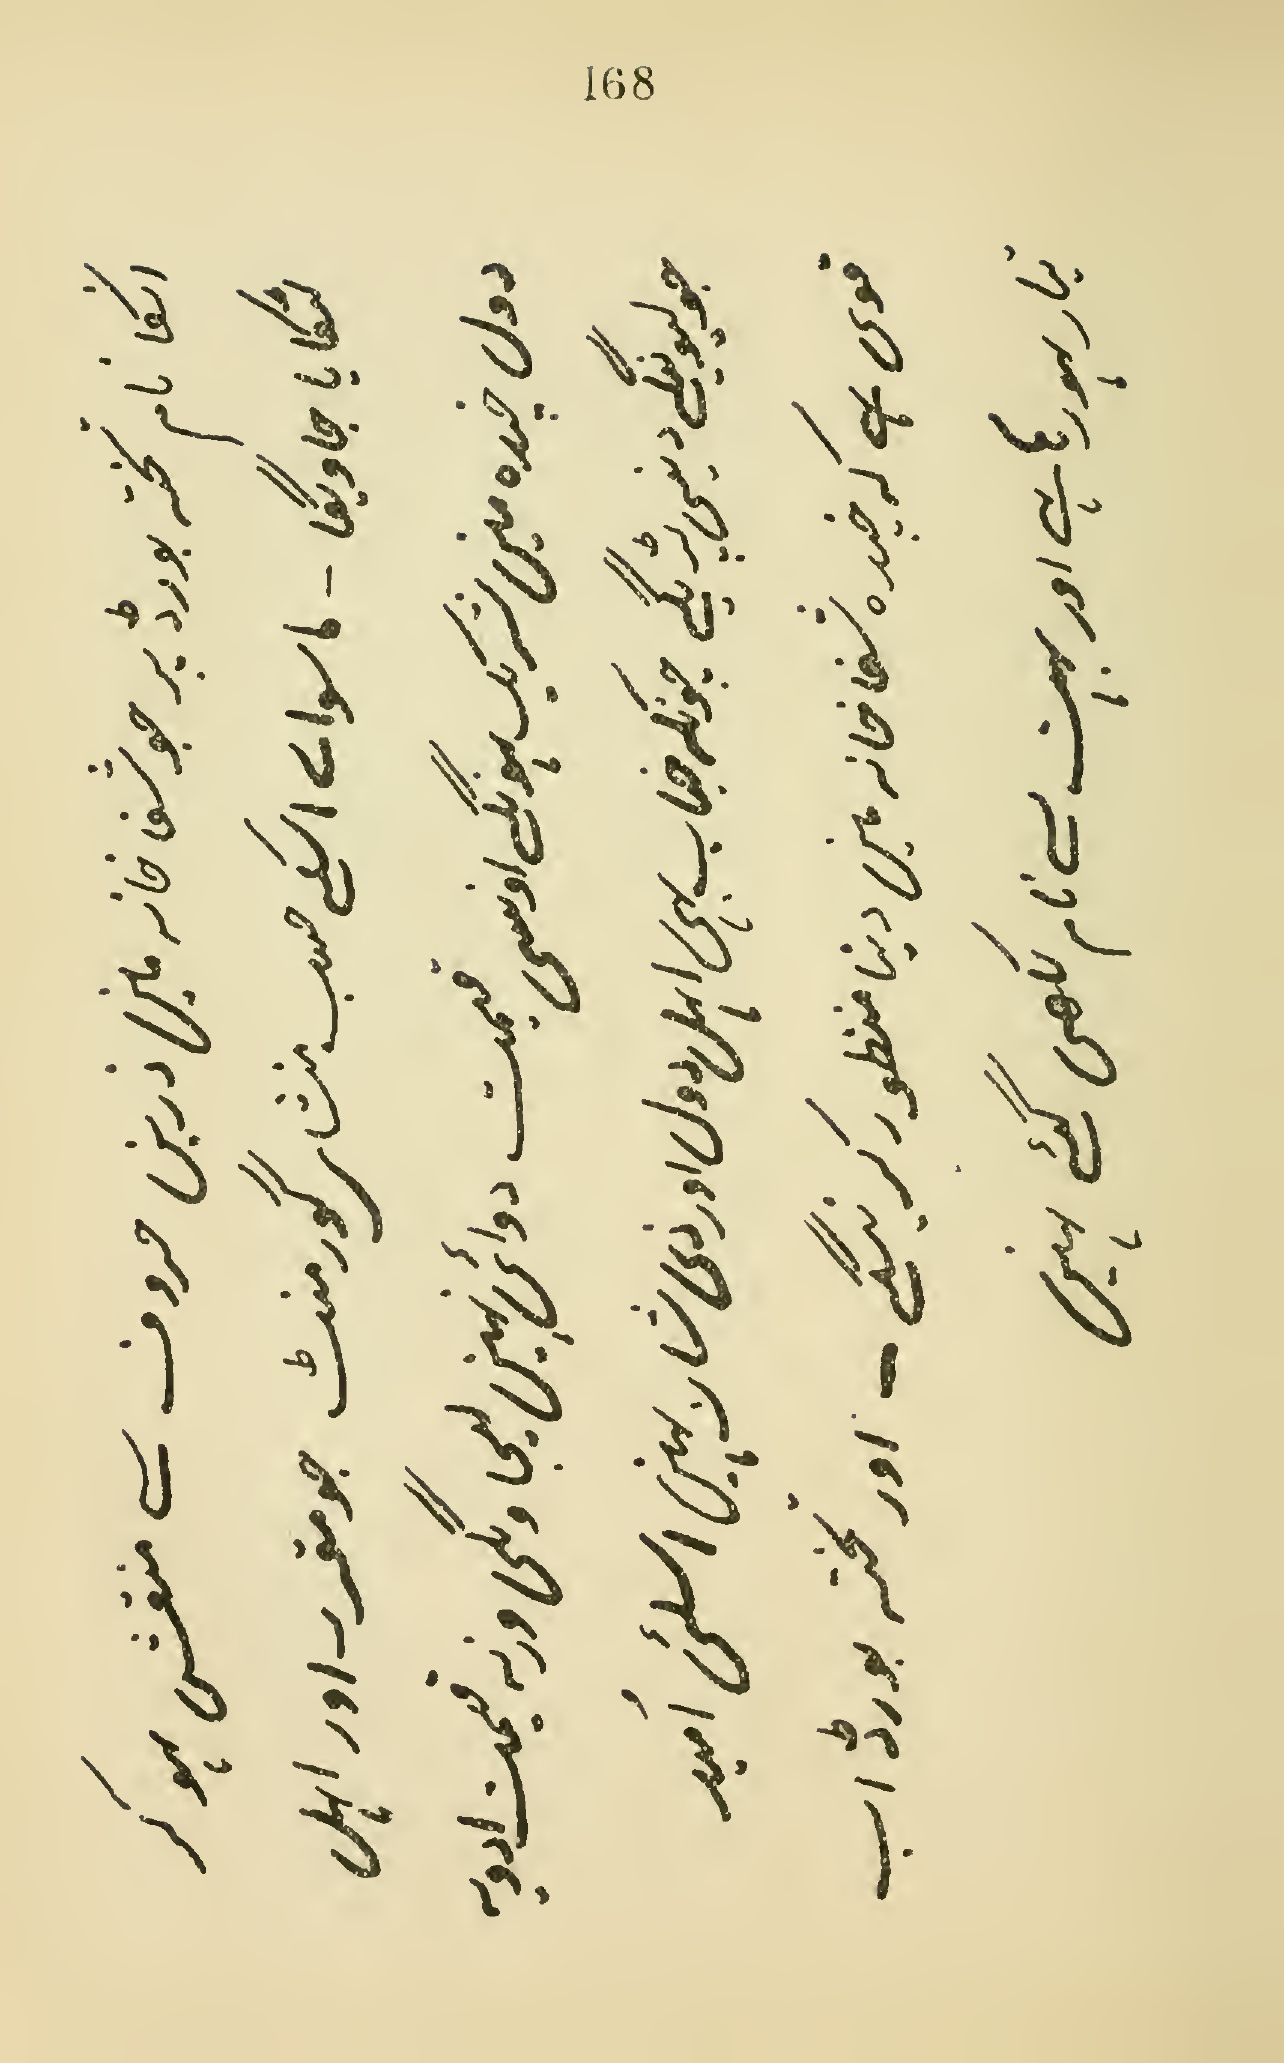 168
انکا نام تختہ بورڈ پر جو شفا خانہ مین زرین حروف سے منقش ہو کر
لٹکایا جاویگا - ماسواے اسکے حسب منشاء گورمنٹ جو مقرر اور اہل
دول چندہ مین شریک ہونگے اونسی قیمت دوائی نہین لیجاویگی ورنہ قیمت ادویہ
جو لیوینگے دینی پڑیگے چونکہ جناب بہی اہل دول اور ذی شان ہین اسلئی اُمید
قوی ہے کہ چندہ شفا خانہ مین دینا منظور کرینگے - اور تختہ بورڈ اب
تیار ہورہا ہے اور بہت سے نام لکھی گئے ہین